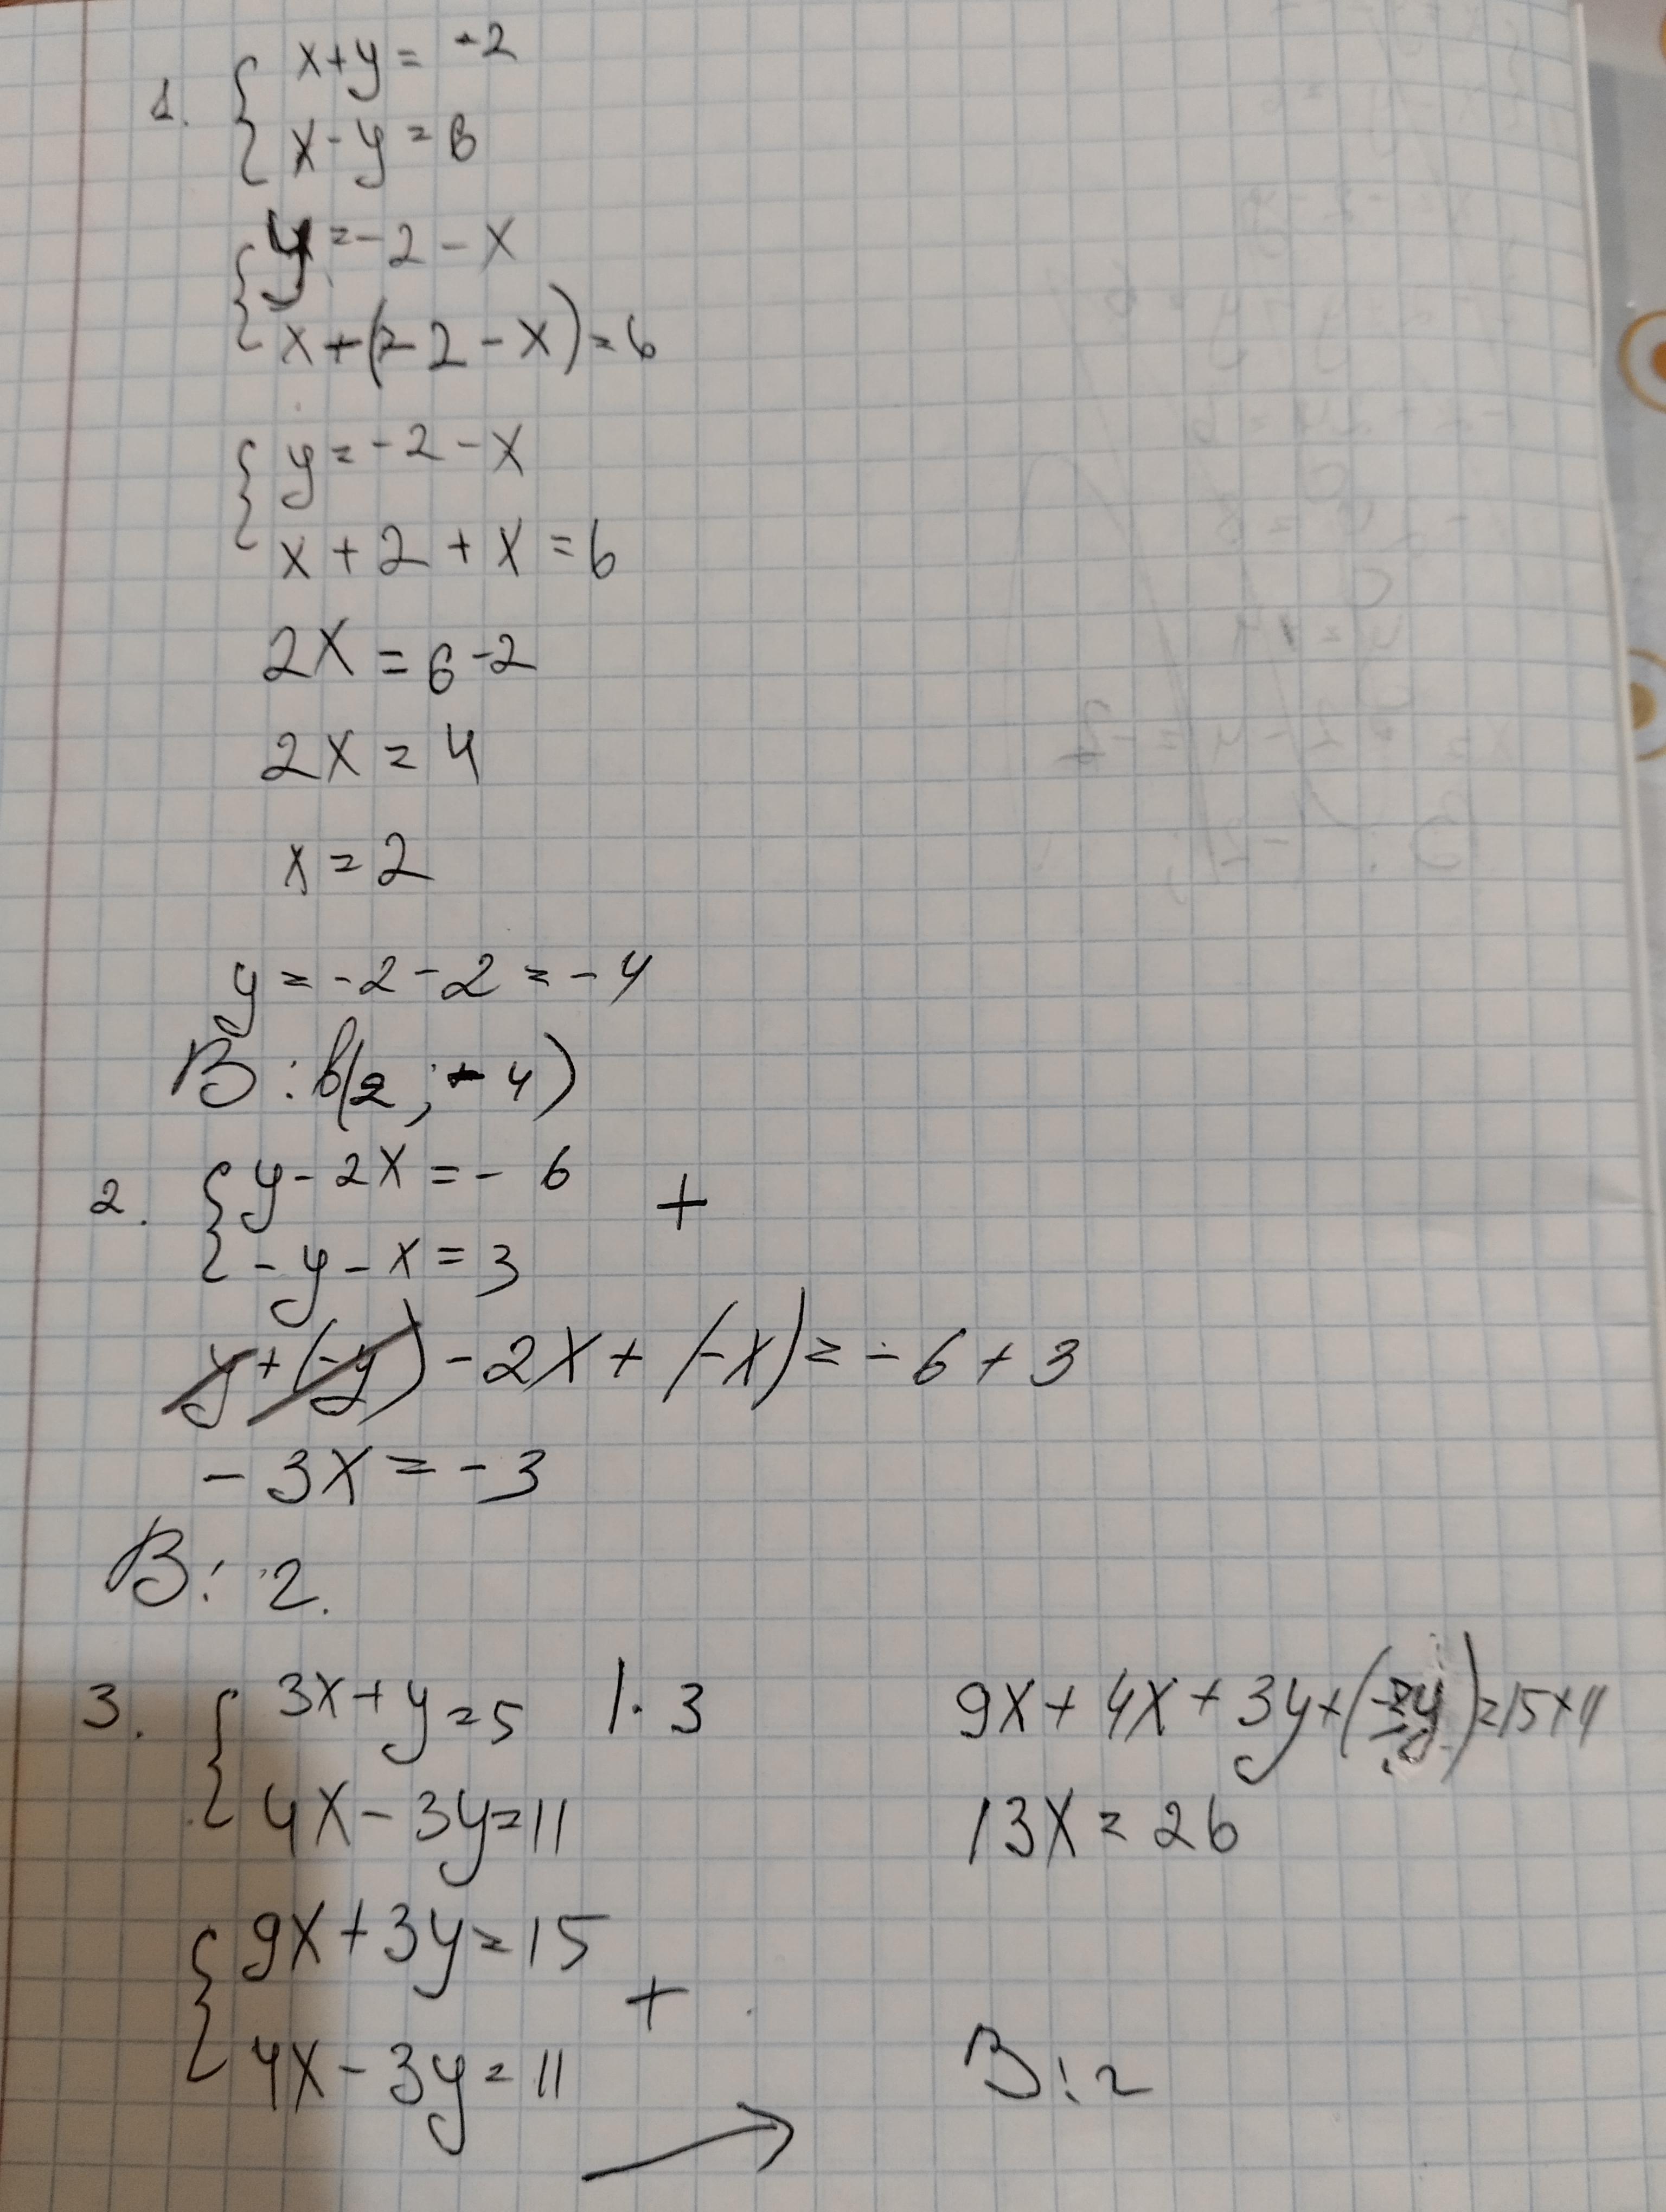 1. { x+y = -2
x-y = 6
{ y = -2 - x
x - (-2 - x) = 6
{ y = -2 - x
x + 2 + x = 6
2x = 6 - 2
2x = 4
x = 2
y = -2 - 2 = -4
В: б(2; -4)
2. { y - 2x = - 6 +
-y - x = 3
y + (-y) - 2x + (-x) = -6 + 3
- 3x = - 3
В: 2.
3. { 3x + y = 5 | · 3
4x - 3y = 11
{ 9x + 3y = 15 +
4x - 3y = 11
9x + 4x + 3y + (-3y) = 15 + 11
13x = 26
В: 2